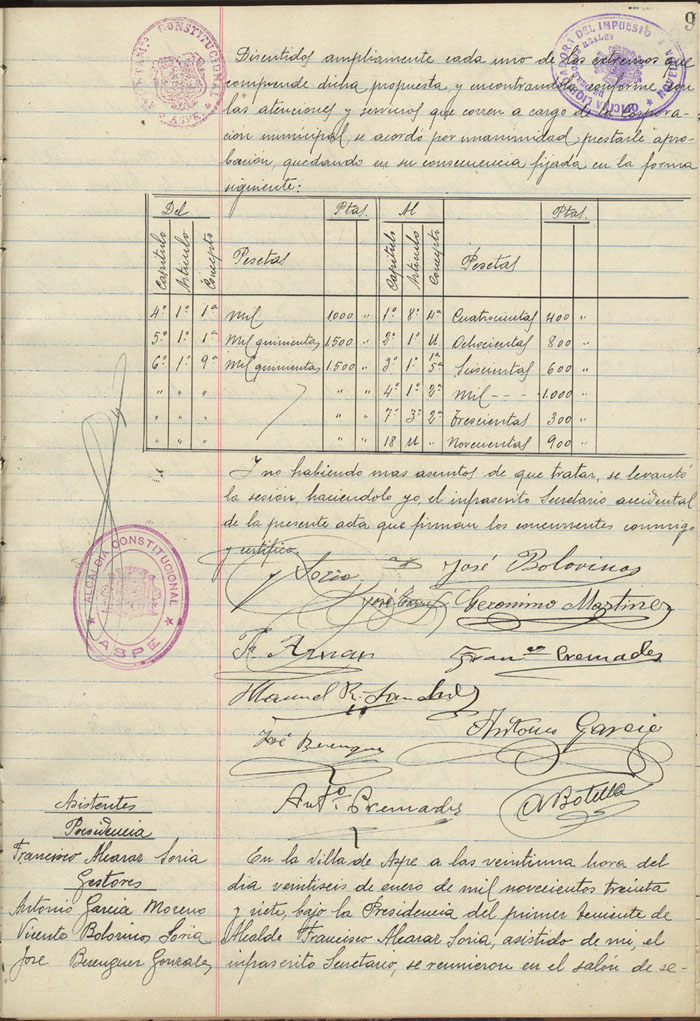 9
AYUNTAMIENTO CONSTITUCIONAL
ASPE
OFICINA LIQUIDADORA DEL IMPUESTO
NOVELDA
Discutidos ampliamente cada uno de los extremos que
comprende dicha propuesta, y encontrandola conforme con
las atenciones y servicios que corren a cargo de la Corpora-
cion municipal, se acordo por unanimidad prestarle apro-
bación, quedando en su consecuencia fijada en la forma
siguiente:
Del Ptas. Al Ptas.
Capitulo Articulo Concepto Pesetas Capitulo Articulo Concepto Pesetas
4º 1º 1ª Mil 1000 " 1º 8º 4ª Cuatrocientas 400 "
5º 1º 1ª Mil quinientas 1.500 " 2º 1º U Ochocientas 800 "
6º 1º 9ª Mil quinientas 1.500 " 3º 1º 1ª 5ª Seiscientas 600 "
" " " " " 4º 1º 2ª Mil - - - 1.000 "
" " " " " 7º 3º 2ª Trescientas 300 "
" " " " " 18 U " Novecientas 900 "
Y no habiendo mas asuntos de que tratar, se levantó
la sesión, haciendolo yo, el infrascrito Secretario accidental
de la presente acta que firman los concurrentes conmigo
y certifico.
ALCALDIA CONSTITUCIONAL
ASPE
Soria José Bolovinos
José Geronimo Martinez
Fr. Aznar Franco Cremades
Manuel R. Sanchez
José Berenguer Antonio Garcia
Antº. Cremades A Botella
Asistentes
Presidencia
Francisco Alcaraz Soria
Gestores
Antonio Garcia Moreno
Vicente Bolorinos Soria
Jose Berenguer Gonzalez
En la Villa de Aspe a las veintiuna hora del
dia veintiseis de enero de mil novecientos treinta
y siete, bajo la Presidencia del primer teniente de
Alcalde Francisco Alcaraz Soria, asistido de mi, el
infrascrito Secretario, se reunieron en el salón de se-